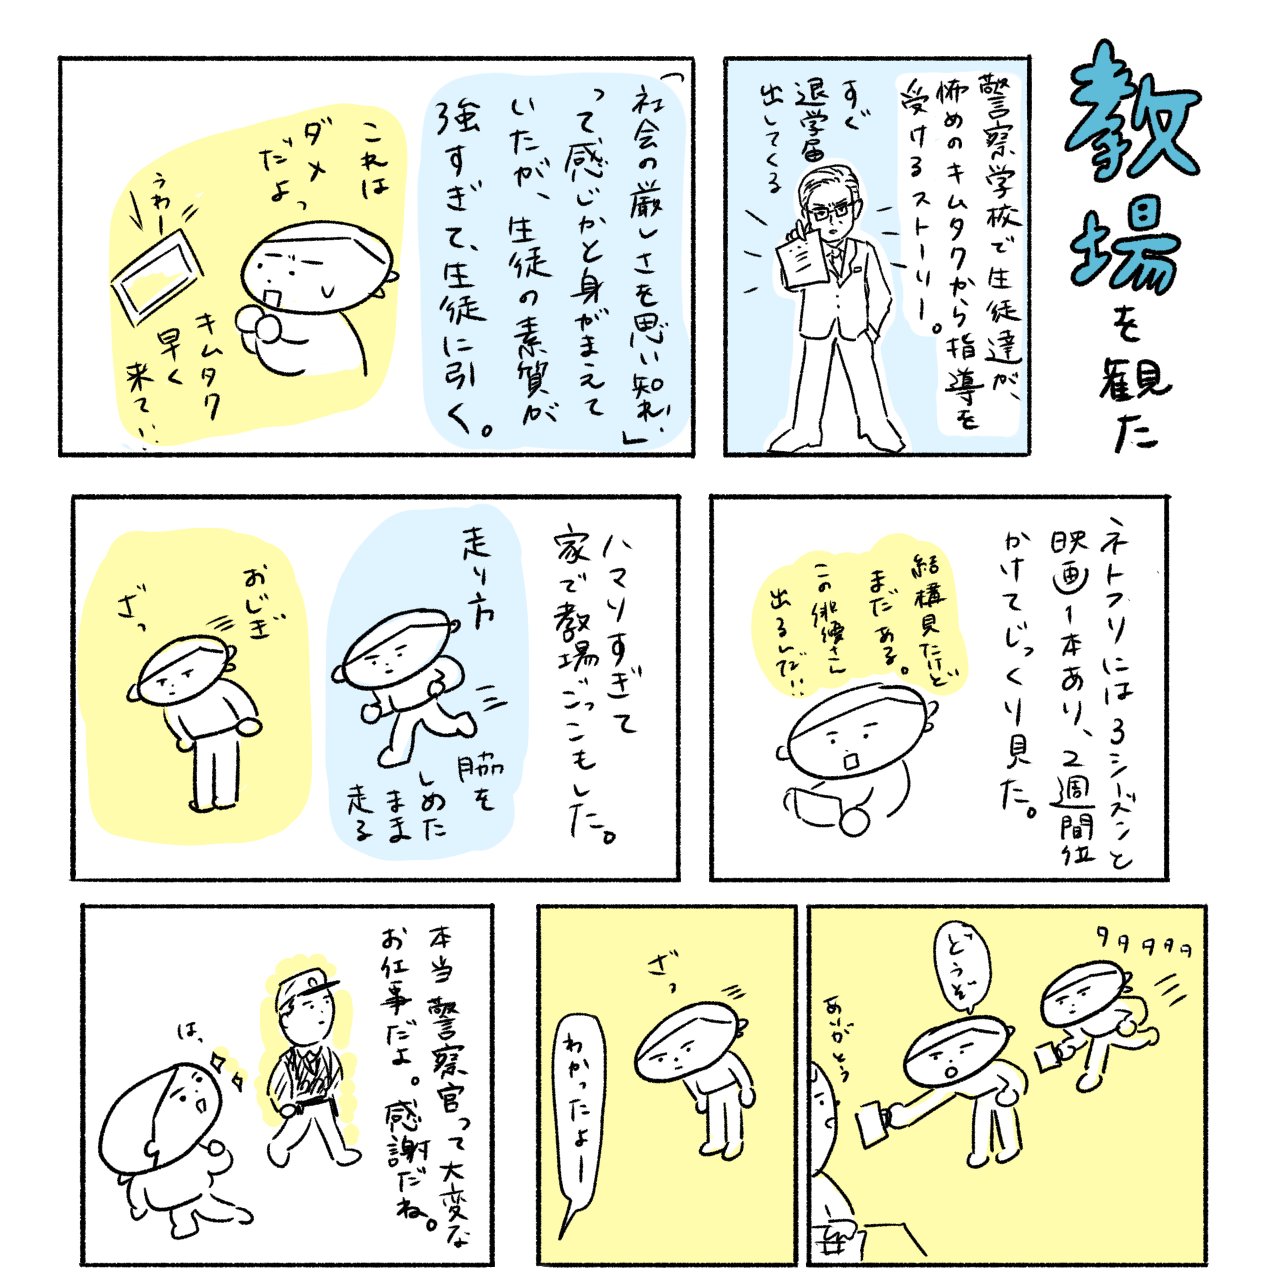 教場を観た
警察学校で生徒達が、
怖めのキムタクから指導を
受けるストーリー。
すぐ
退学届
出してくる
「社会の厳しさを思い知れ！」
って、感じかと身がまえて
いたが、生徒の素質が
強すぎて、生徒に引く。
これは
ダメ
だよっ
うわー
キムタク
早く
来て…
ネトフリには3シーズンと
映画1本あり、2週間位
かけてじっくり見た。
結構見たけど
まだある。
この俳優さん
出るんだ…
ハマりすぎて
家で教場ごっこもした。
走り方
脇を
しめた
まま
走る
おじぎ
ざっ
タタタタタ
どうぞ
ありがとう
ざっ
わかったよー
本当警察官って大変な
お仕事だよ。感謝だね。
は、